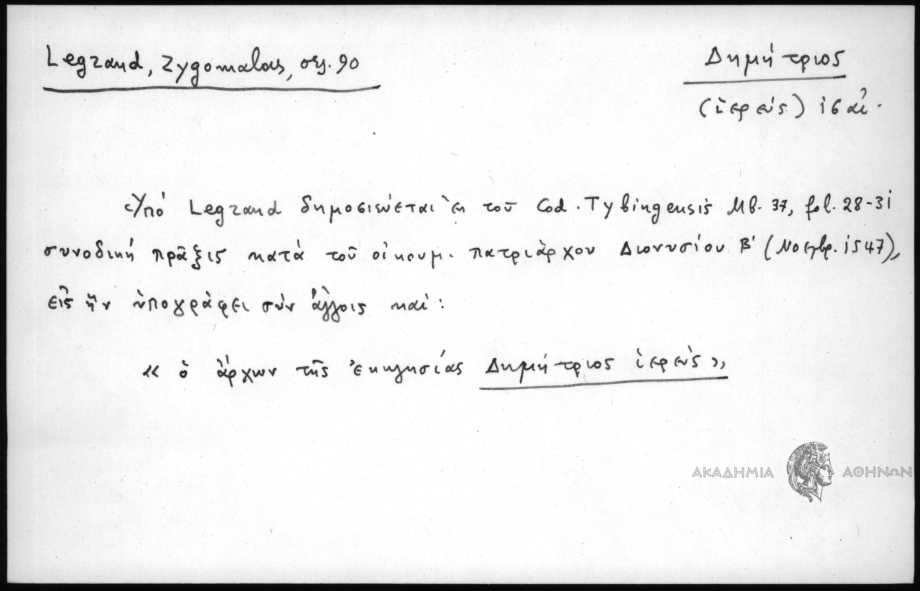 Legrand, Zygomalas, σελ. 90
Δημήτριος
(ἱερεύς) ις αἰ.
Ὑπὸ Legrand δημοσιεύεται ἐκ τοῦ Cod. Tybingensis Mb. 37, fol. 28-31
συνοδικὴ πρᾶξις κατὰ τοῦ οἰκουμ. πατριάρχου Διονυσίου Β' (Νοεμβρ. 1547),
εἰς ἣν ὑπογράφει σὺν ἄλλοις καί:
« ὁ ἄρχων τῆς ἐκκλησίας Δημήτριος ἱερεύς»
ΑΚΑΔΗΜΙΑ ΑΘΗΝΩΝ